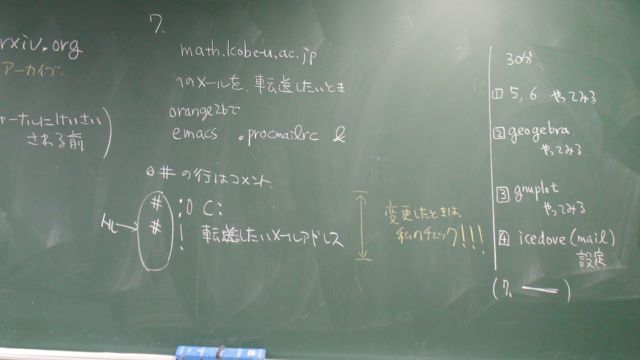 rxiv.org
アーカイブ
ャーナルにけいさい
される前)
7.
math.kobe-u.ac.jp
へのメールを、転送したいとき
orange2bで
emacs .procmailrc &
◎#の行はコメント.
# :0 C:
トル→ # ! 転送したいメールアドレス
変更したときは、
私のチェック!!!
30分
1 5, 6 やってみる
2 geogebra
やってみる
3 gnuplot
やってみる
4 icedove (mail)
設定
(7. ―)